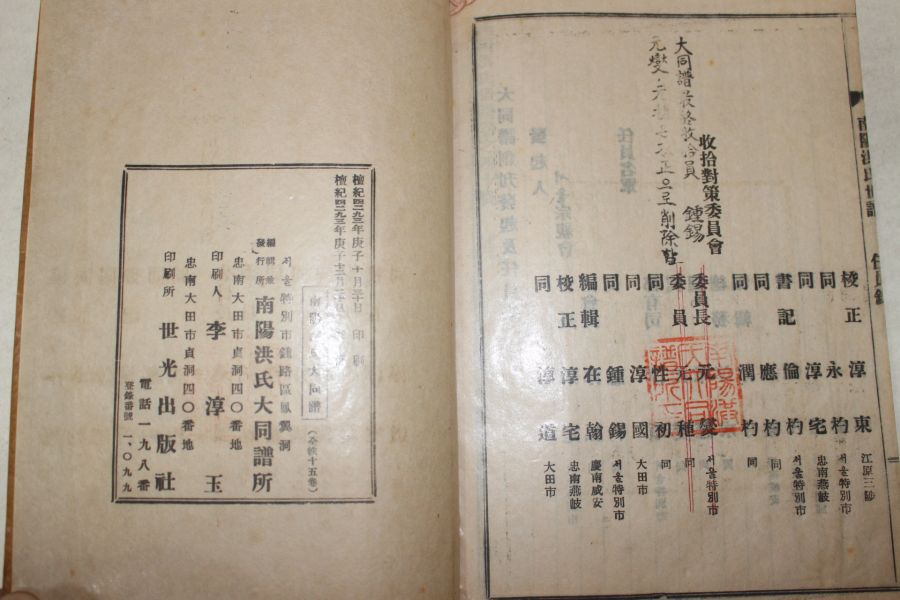 南陽洪氏世譜
任員錄
校正 淳東 江原三陟
同 永杓 서울特別市
同 淳宅 忠南燕岐
書記 倫杓 서울特別市
同 應杓 同
同 潤杓
收拾對策委員會
委員長 元燮 서울特別市
委員 元種 同
同 性初 同
同 淳國 大田市
同 鍾錫 서울特別市
編輯 在翰 慶南咸安
校正 淳宅 忠南燕岐
同 淳道 大田市
大同譜最終收合員 鍾錫
元燮 不正으로 削除함
檀紀四二九三年庚子十月三十日 印刷
檀紀四二九三年庚子十二月
南陽洪氏大同譜
(全帙十五卷)
서울特別市鍾路區鳳翼洞
編輯兼
發行所 南陽洪氏大同譜所
忠南大田市貞洞四〇番地
印刷人 李淳玉
忠南大田市貞洞四〇番地
印刷所 世光出版社
電話一九八番
登錄番號 一、〇九九